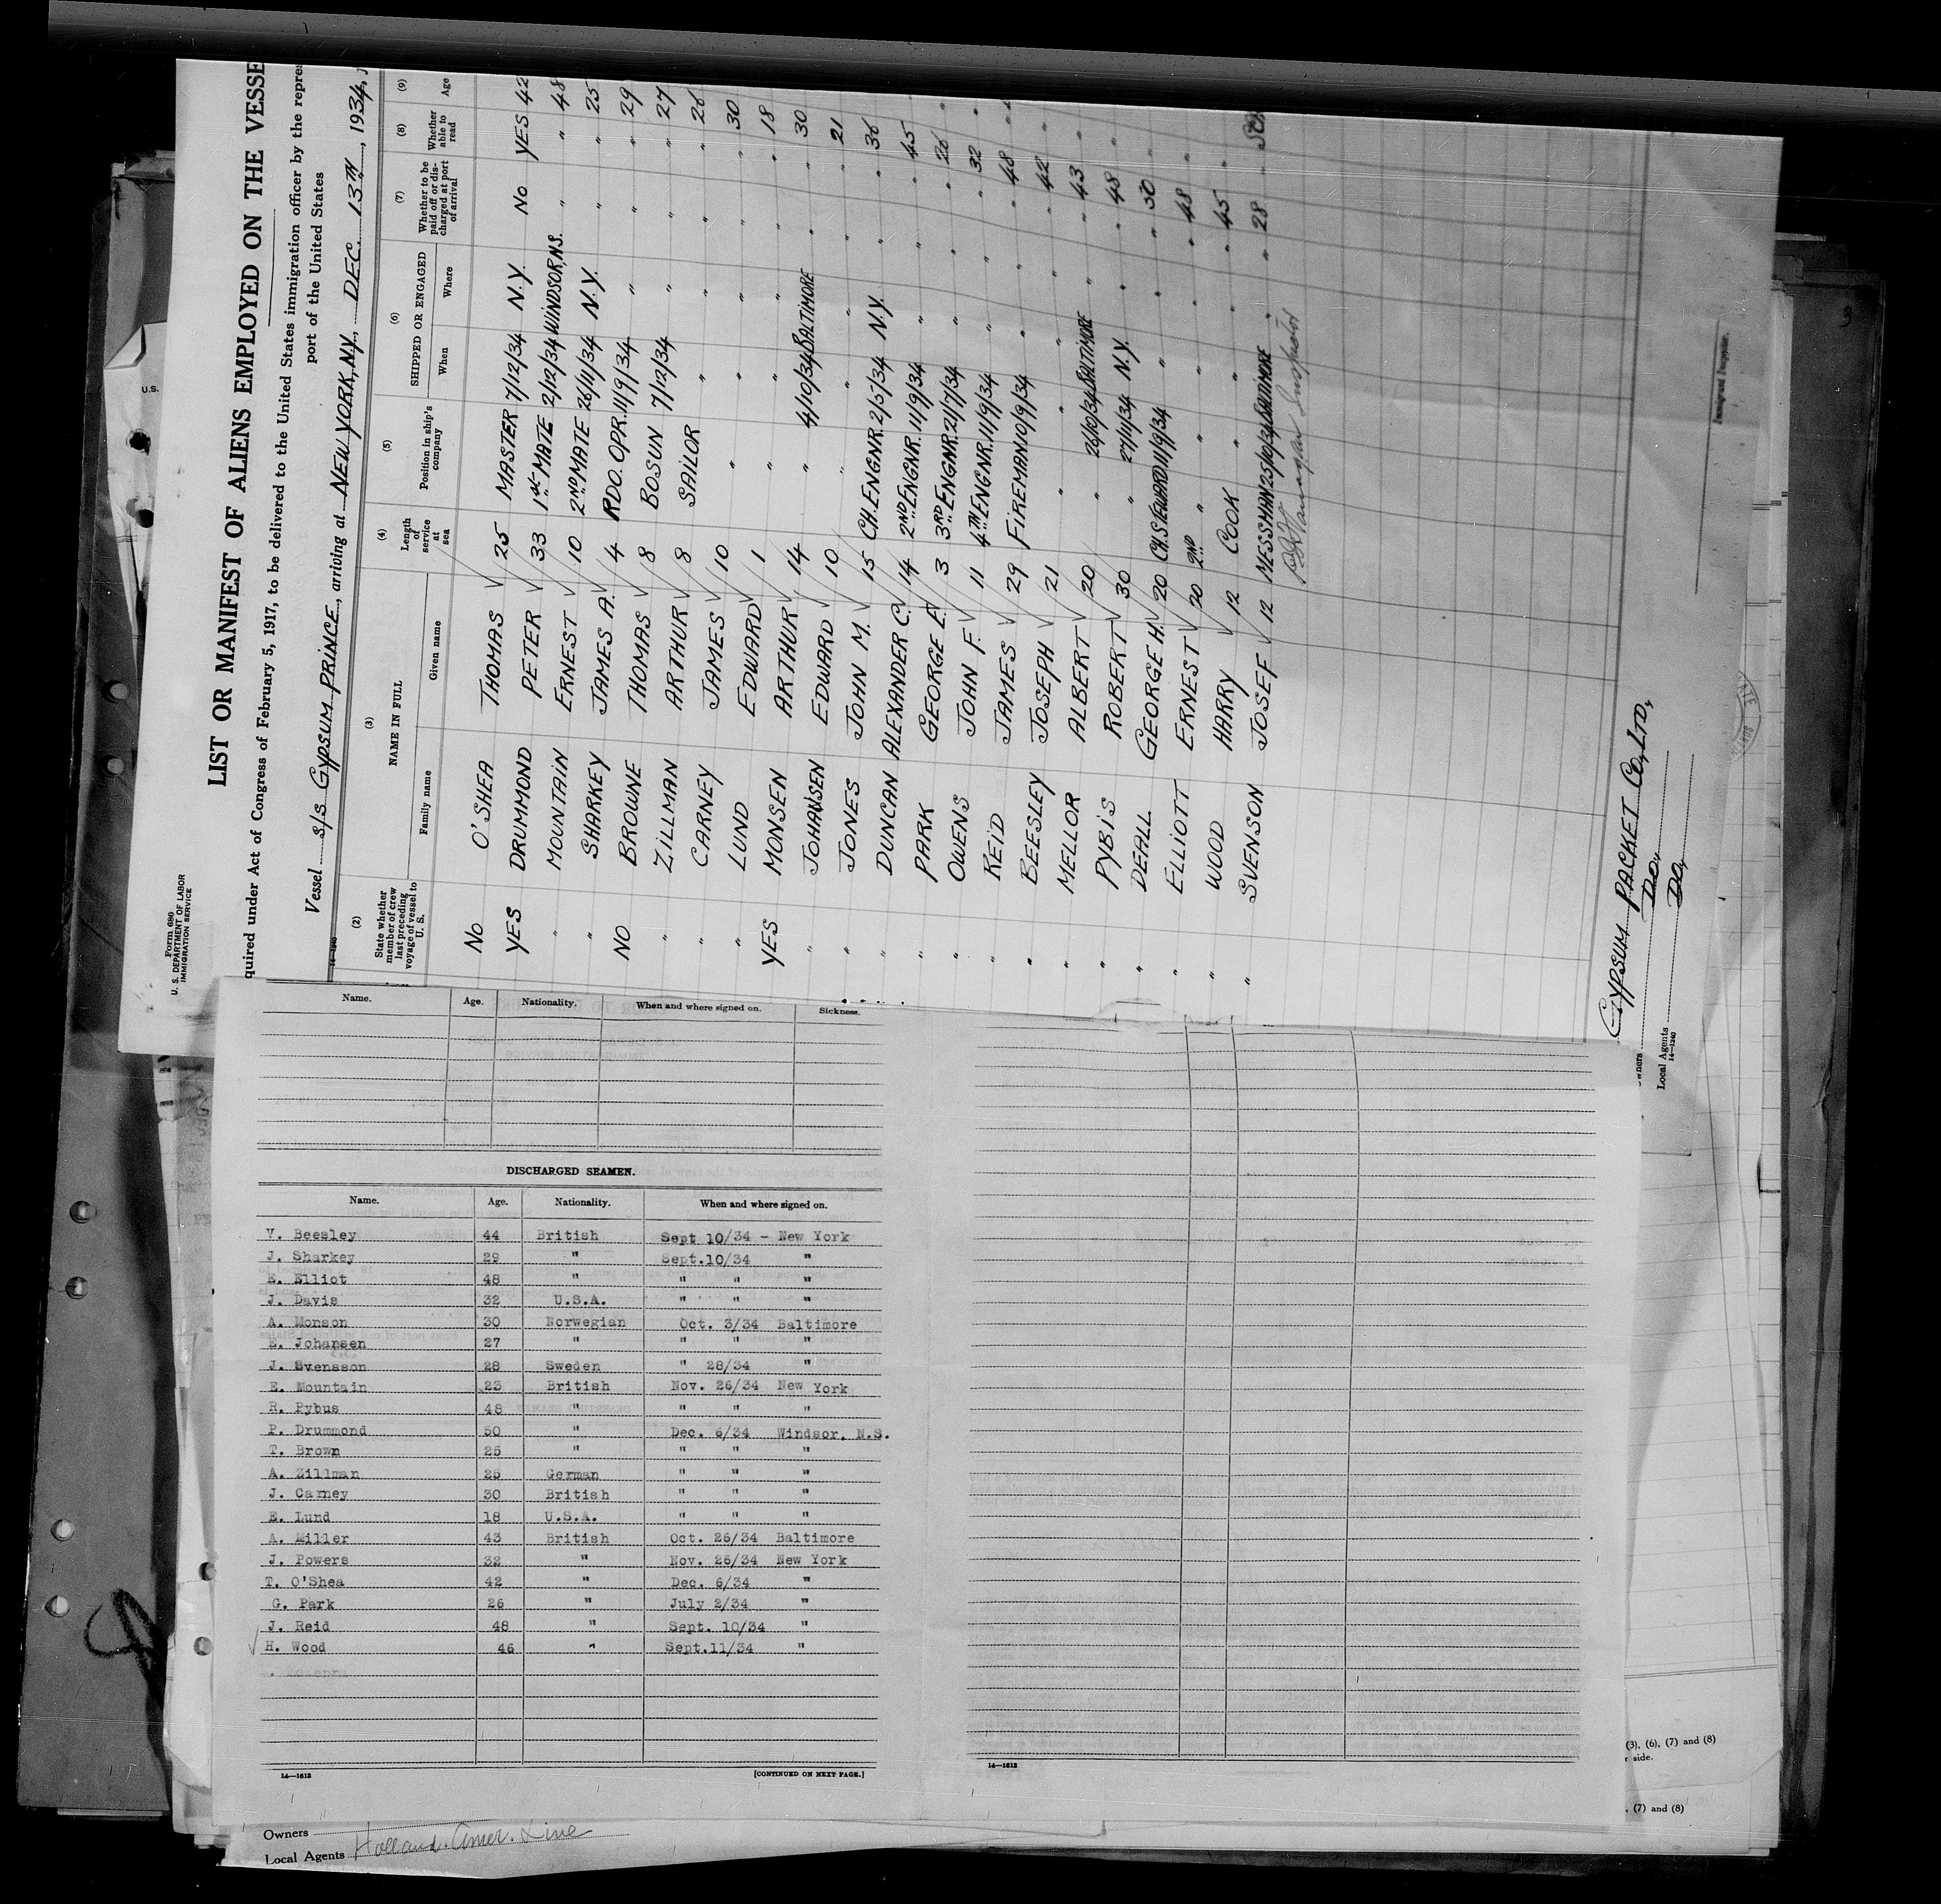 Form 680
U. S. DEPARTMENT OF LABOR
IMMIGRATION SERVICE
LIST OR MANIFEST OF ALIENS EMPLOYED ON THE VESSE
quired under Act of Congress of February 5, 1917, to be delivered to the United States immigration officer by the repres
port of the United States
Vessel S/S GYPSUM PRINCE, arriving at NEW YORK, N.Y., DEC. 13TH, 1934,
(2) (3) (4) (5) (6) (7) (8) (9)
State whether member of crew last preceding voyage of vessel to U. S. NAME IN FULL Length of service at sea Position in ship's company SHIPPED OR ENGAGED Whether to be paid off or discharged at port of arrival Whether able to read Age
Family name Given name When Where
NO O'SHEA THOMAS √ 25 MASTER 7/12/34 N.Y. NO YES 42
YES DRUMMOND PETER √ 33 1st MATE 2/12/34 WINDSOR, N.S. " " 48
" MOUNTAIN ERNEST √ 10 2ND MATE 26/11/34 N.Y. " " 25
" SHARKEY JAMES A. √ 4 RDO. OPR. 11/9/34 " " " 29
NO BROWNE THOMAS √ 8 BOSUN 7/12/34 " " " 27
" ZILLMAN ARTHUR √ 8 SAILOR " " " " 26
" CARNEY JAMES √ 10 " " " " " 30
" LUND EDWARD √ 1 " " " " " 18
YES MONSEN ARTHUR √ 14 " 4/10/34 BALTIMORE " " 30
" JOHANSEN EDWARD √ 10 " " " " " 21
" JONES JOHN M. √ 15 CH. ENGNR. 2/5/34 N.Y. " " 36
" DUNCAN ALEXANDER C. √ 14 2ND ENGNR. 11/9/34 " " " 45
" PARK GEORGE E. √ 3 3RD ENGNR. 21/7/34 " " " 26
" OWENS JOHN F. √ 11 4TH ENGNR. 11/9/34 " " " 32
" REID JAMES √ 29 FIREMAN 10/9/34 " " " 48
" BEESLEY JOSEPH √ 21 " " " " " 42
" MELLOR ALBERT √ 20 " 26/10/34 BALTIMORE " " 43
" PYBIS ROBERT √ 30 " 27/11/34 N.Y. " " 48
" DEALL GEORGE H. √ 20 CH. STEWARD. 11/9/34 " " " 30
" ELLIOTT ERNEST √ 20 2ND " " " " " 48
" WOOD HARRY √ 12 COOK " " " " 45
" SVENSON JOSEF √ 12 MESSMAN 25/10/34 BALTIMORE " " 28
Inspector
Immigrant Inspector.
GYPSUM PACKET CO., LTD.,
wners DO.,
Local Agents DO,
14—1240
U.S.
Name. Age. Nationality. When and where signed on. Sickness.
DISCHARGED SEAMEN.
Name. Age. Nationality. When and where signed on.
V. Beesley 44 British Sept 10/34 - New York
J. Sharkey 29 " Sept.10/34 "
E. Elliot 48 " " " "
J. Davis 32 U.S.A. " " "
A. Monson 30 Norwegian Oct. 3/34 Baltimore
E. Johansen 27 " " " "
J. Svensson 28 Sweden " 28/34 "
E. Mountain 23 British Nov. 26/34 New York
R. Pybus 48 " " " "
P. Drummond 50 " Dec. 6/34 Windsor, N.S.
T. Brown 25 " " " "
A. Zillman 25 German " " "
J. Carney 30 British " " "
E. Lund 18 U.S.A. " " "
A. Miller 43 British Oct. 26/34 Baltimore
J. Powers 32 " Nov. 26/34 New York
T. O'Shea 42 " Dec. 6/34 "
G. Park 26 " July 2/34 "
J. Reid 48 " Sept. 10/34 "
√ H. Wood 46 " Sept.11/34 "
14—1613 [CONTINUED ON NEXT PAGE.]
14—1613
(3), (6), (7) and (8)
r side.
, (7) and (8)
Owners
Local Agents Holland. Amer. Line